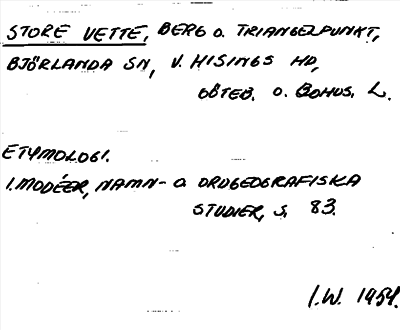 STORE VETTE, BERG O. TRIANGELPUNKT,
BJÖRLANDA SN, V. HISINGS HD,
GÖTEB. O. BOHUS. L.
ETYMOLOGI.
I. MODÉER, NAMN- O ORDGEOGRAFISKA
STUDIER, S. 83.
I.W. 1954.